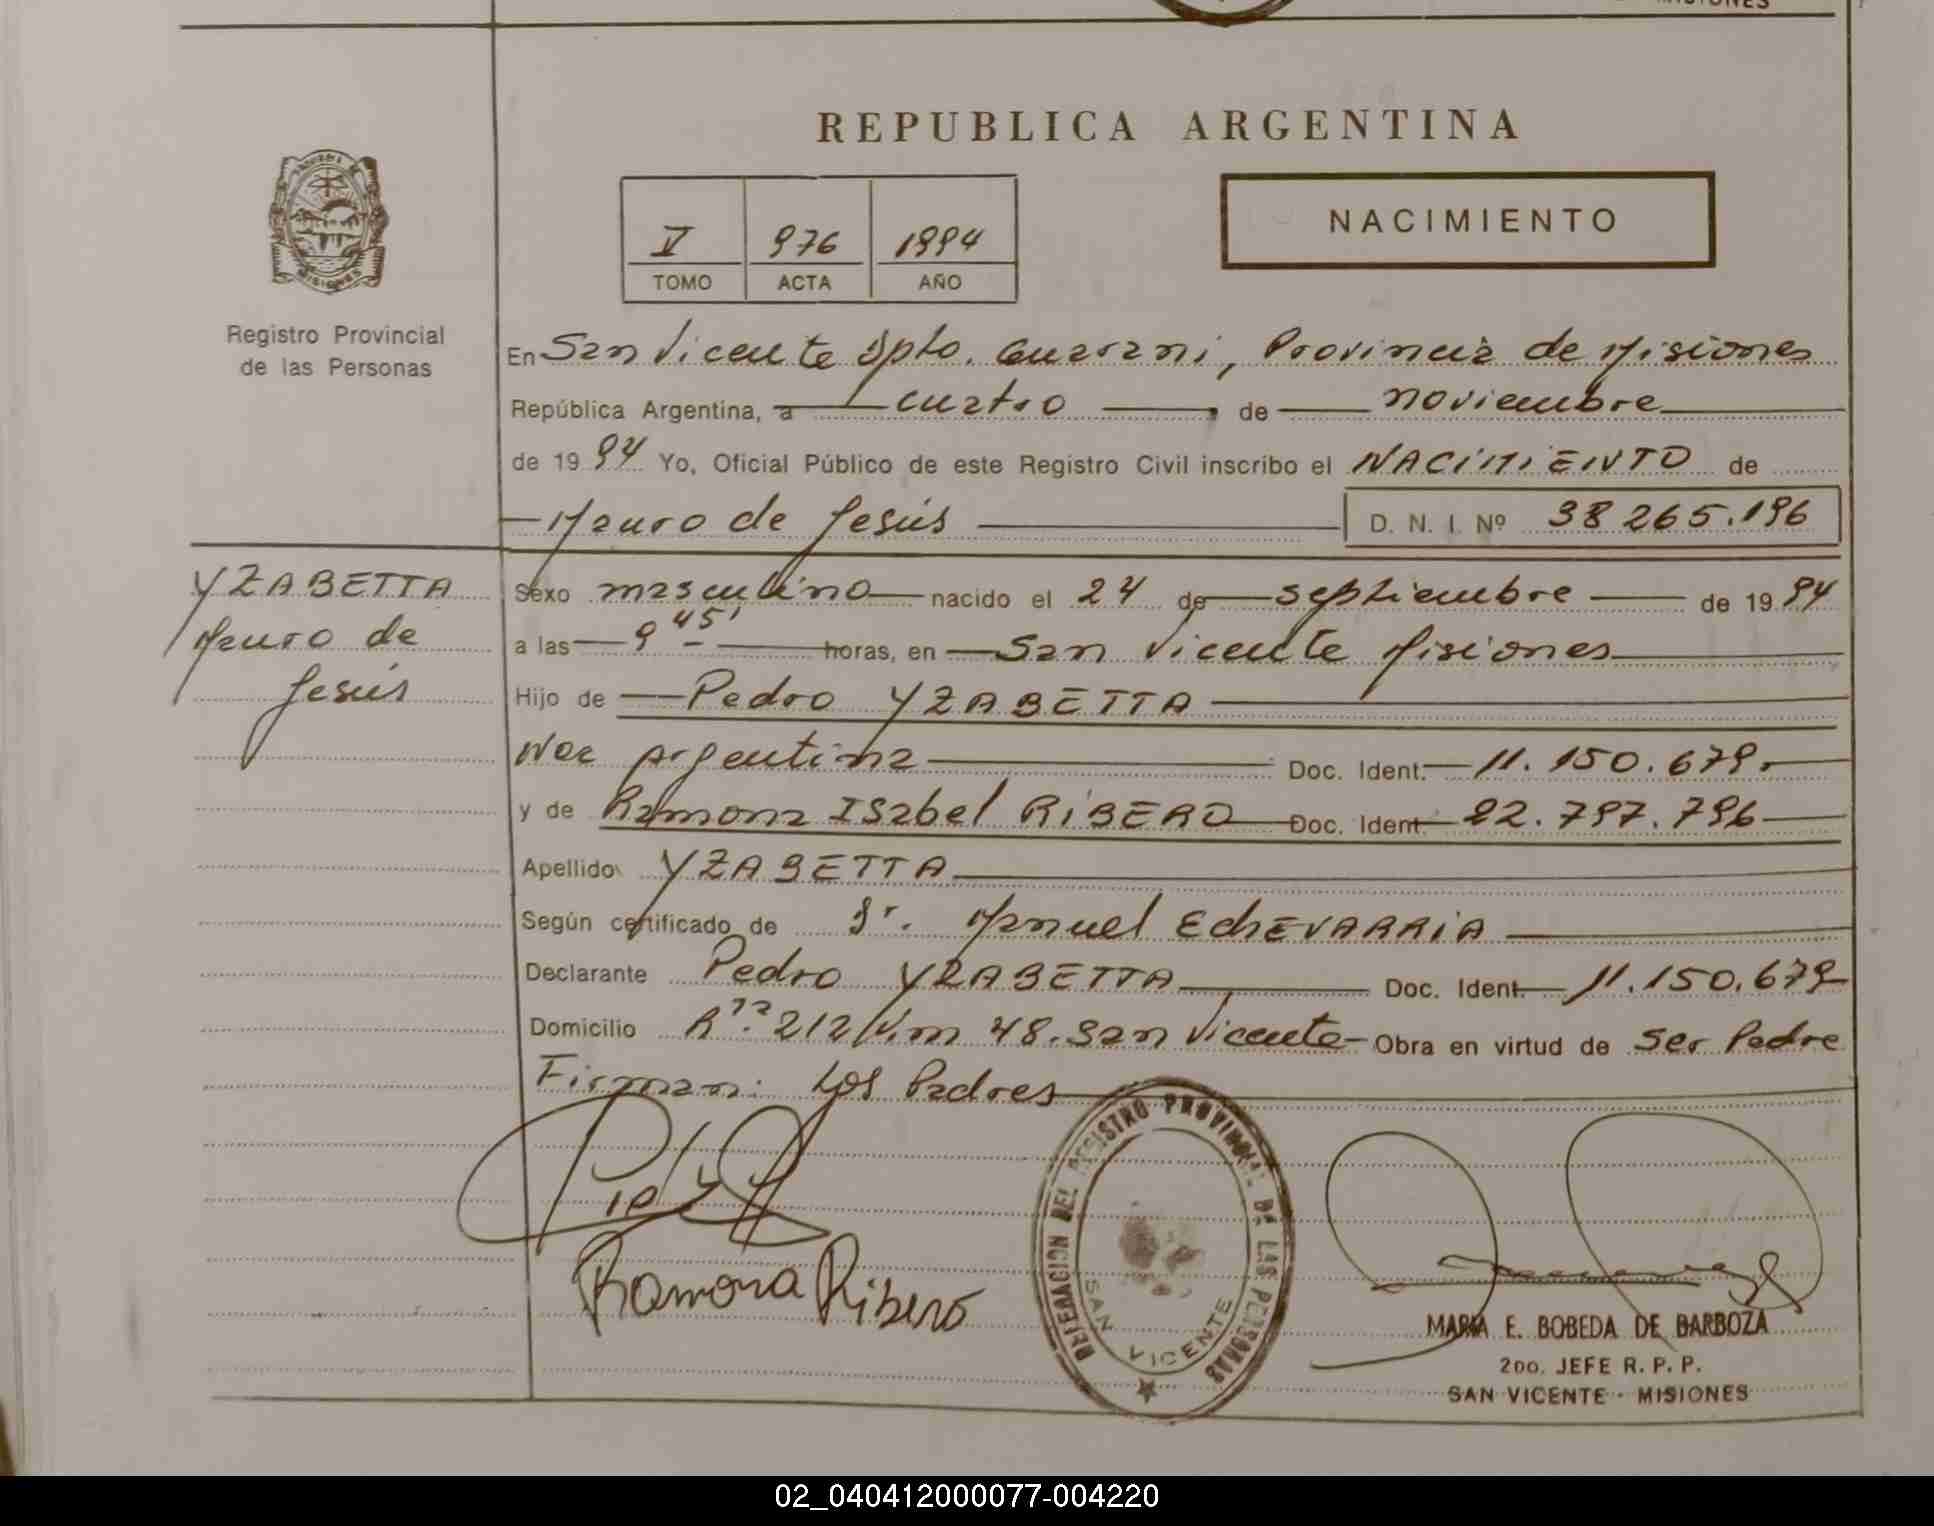 MISIONES
REPUBLICA ARGENTINA
V 976 1994
TOMO ACTA AÑO
NACIMIENTO
Registro Provincial
de las Personas
En San Vicente Dpto. Guarani, Provincia de Misiones
República Argentina, a cuatro de noviembre
de 1994 Yo, Oficial Público de este Registro Civil inscribo el NACIMIENTO de
Mauro de Jesús D. N. I. Nº 38 265.196
YZABETTA
Mauro de
Jesús
Sexo masculino nacido el 24 de septiembre de 1994
a las 9 45' horas, en San Vicente Misiones
Hijo de Pedro YZABETTA
Nac Argentina Doc. Ident. 11.150.679.
y de Ramona ISabel RiBERO Doc. Ident. 22.797.796
Apellido YZABETTA
Según certificado de Dr. Manuel EchEVARRiA
Declarante Pedro YZABETTA Doc. Ident. 11.150.679
Domicilio 212 Km 48. San Vicente Obra en virtud de Ser Padre
Firman: Los Padres
Ramona Ribero
DELEGACION DEL REGISTRO PROVINCIAL DE LAS PERSONAS
SAN VICENTE
MARIA E. BOBEDA DE BARBOZA
2DO. JEFE R. P. P.
SAN VICENTE - MISIONES
02_040412000077-004220